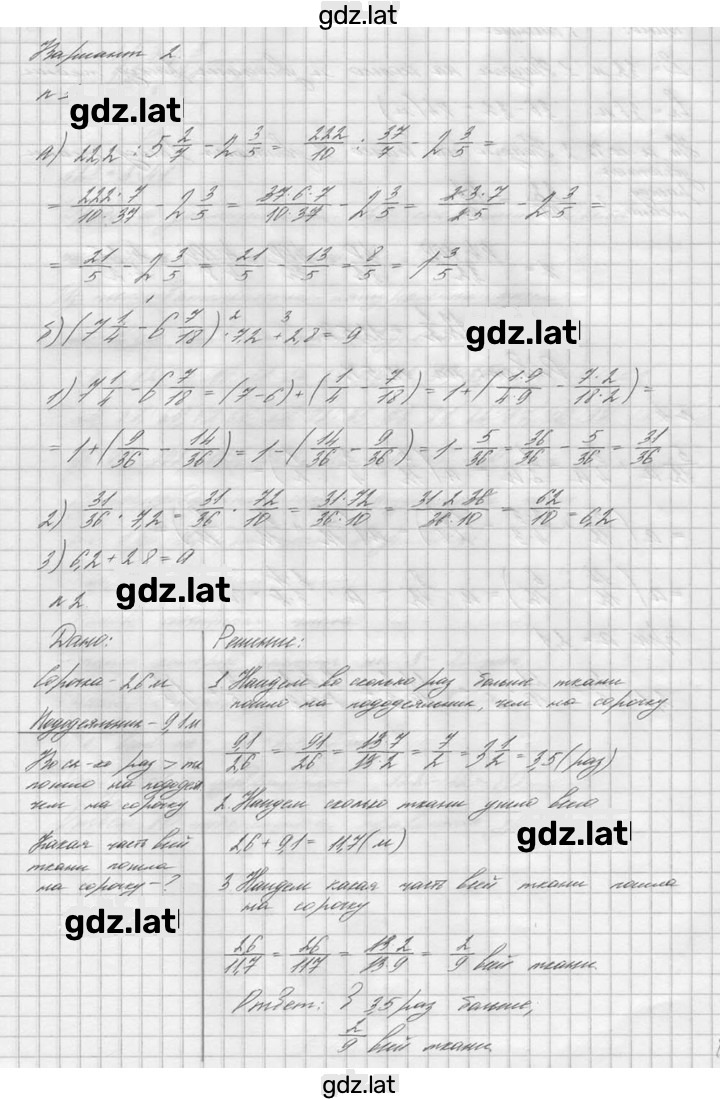 gdz.lat
Вариант 2
gdz.lat
а) 22,2 : 5 2/7 - 2 3/5 = 222/10 : 37/7 - 2 3/5 =
= 222·7/10·37 - 2 3/5 = 37·6·7/10·37 - 2 3/5 = 2·3·7/2·5 - 2 3/5 =
= 21/5 - 2 3/5 = 21/5 - 13/5 = 8/5 = 1 3/5
1 2 3
б) (7 1/4 - 6 7/18) · 7,2 + 2,8 = 9
gdz.lat
1) 7 1/4 - 6 7/18 = (7-6) + (1/4 - 7/18) = 1 + (1·9/4·9 - 7·2/18·2) =
= 1 + (9/36 - 14/36) = 1 - (14/36 - 9/36) = 1 - 5/36 = 36/36 - 5/36 = 31/36
2) 31/36 · 7,2 = 31/36 · 72/10 = 31·72/36·10 = 31·2·36/36·10 = 62/10 = 6,2
3) 6,2 + 2,8 = 9
gdz.lat
№2
Дано:
Сорочка - 2,6 м
Пододеяльник - 9,1 м
Во ск-ко раз > тк
пошло на пододея
чем на сорочку
Какая часть всей
ткани пошла
на сорочку - ?
gdz.lat
Решение:
1 Найдем во сколько раз больше ткани
пошло на пододеяльник, чем на сорочку
9,1/2,6 = 91/26 = 13·7/13·2 = 7/2 = 3 1/2 = 3,5 (раз)
2 Найдем сколько ткани ушло всего
2,6 + 9,1 = 11,7 (м)
gdz.lat
3 Найдем какая часть всей ткани пошла
на сорочку
2,6/11,7 = 26/117 = 13·2/13·9 = 2/9 всей ткани.
Ответ: в 3,5 раз больше,
2/9 всей ткани.
gdz.lat